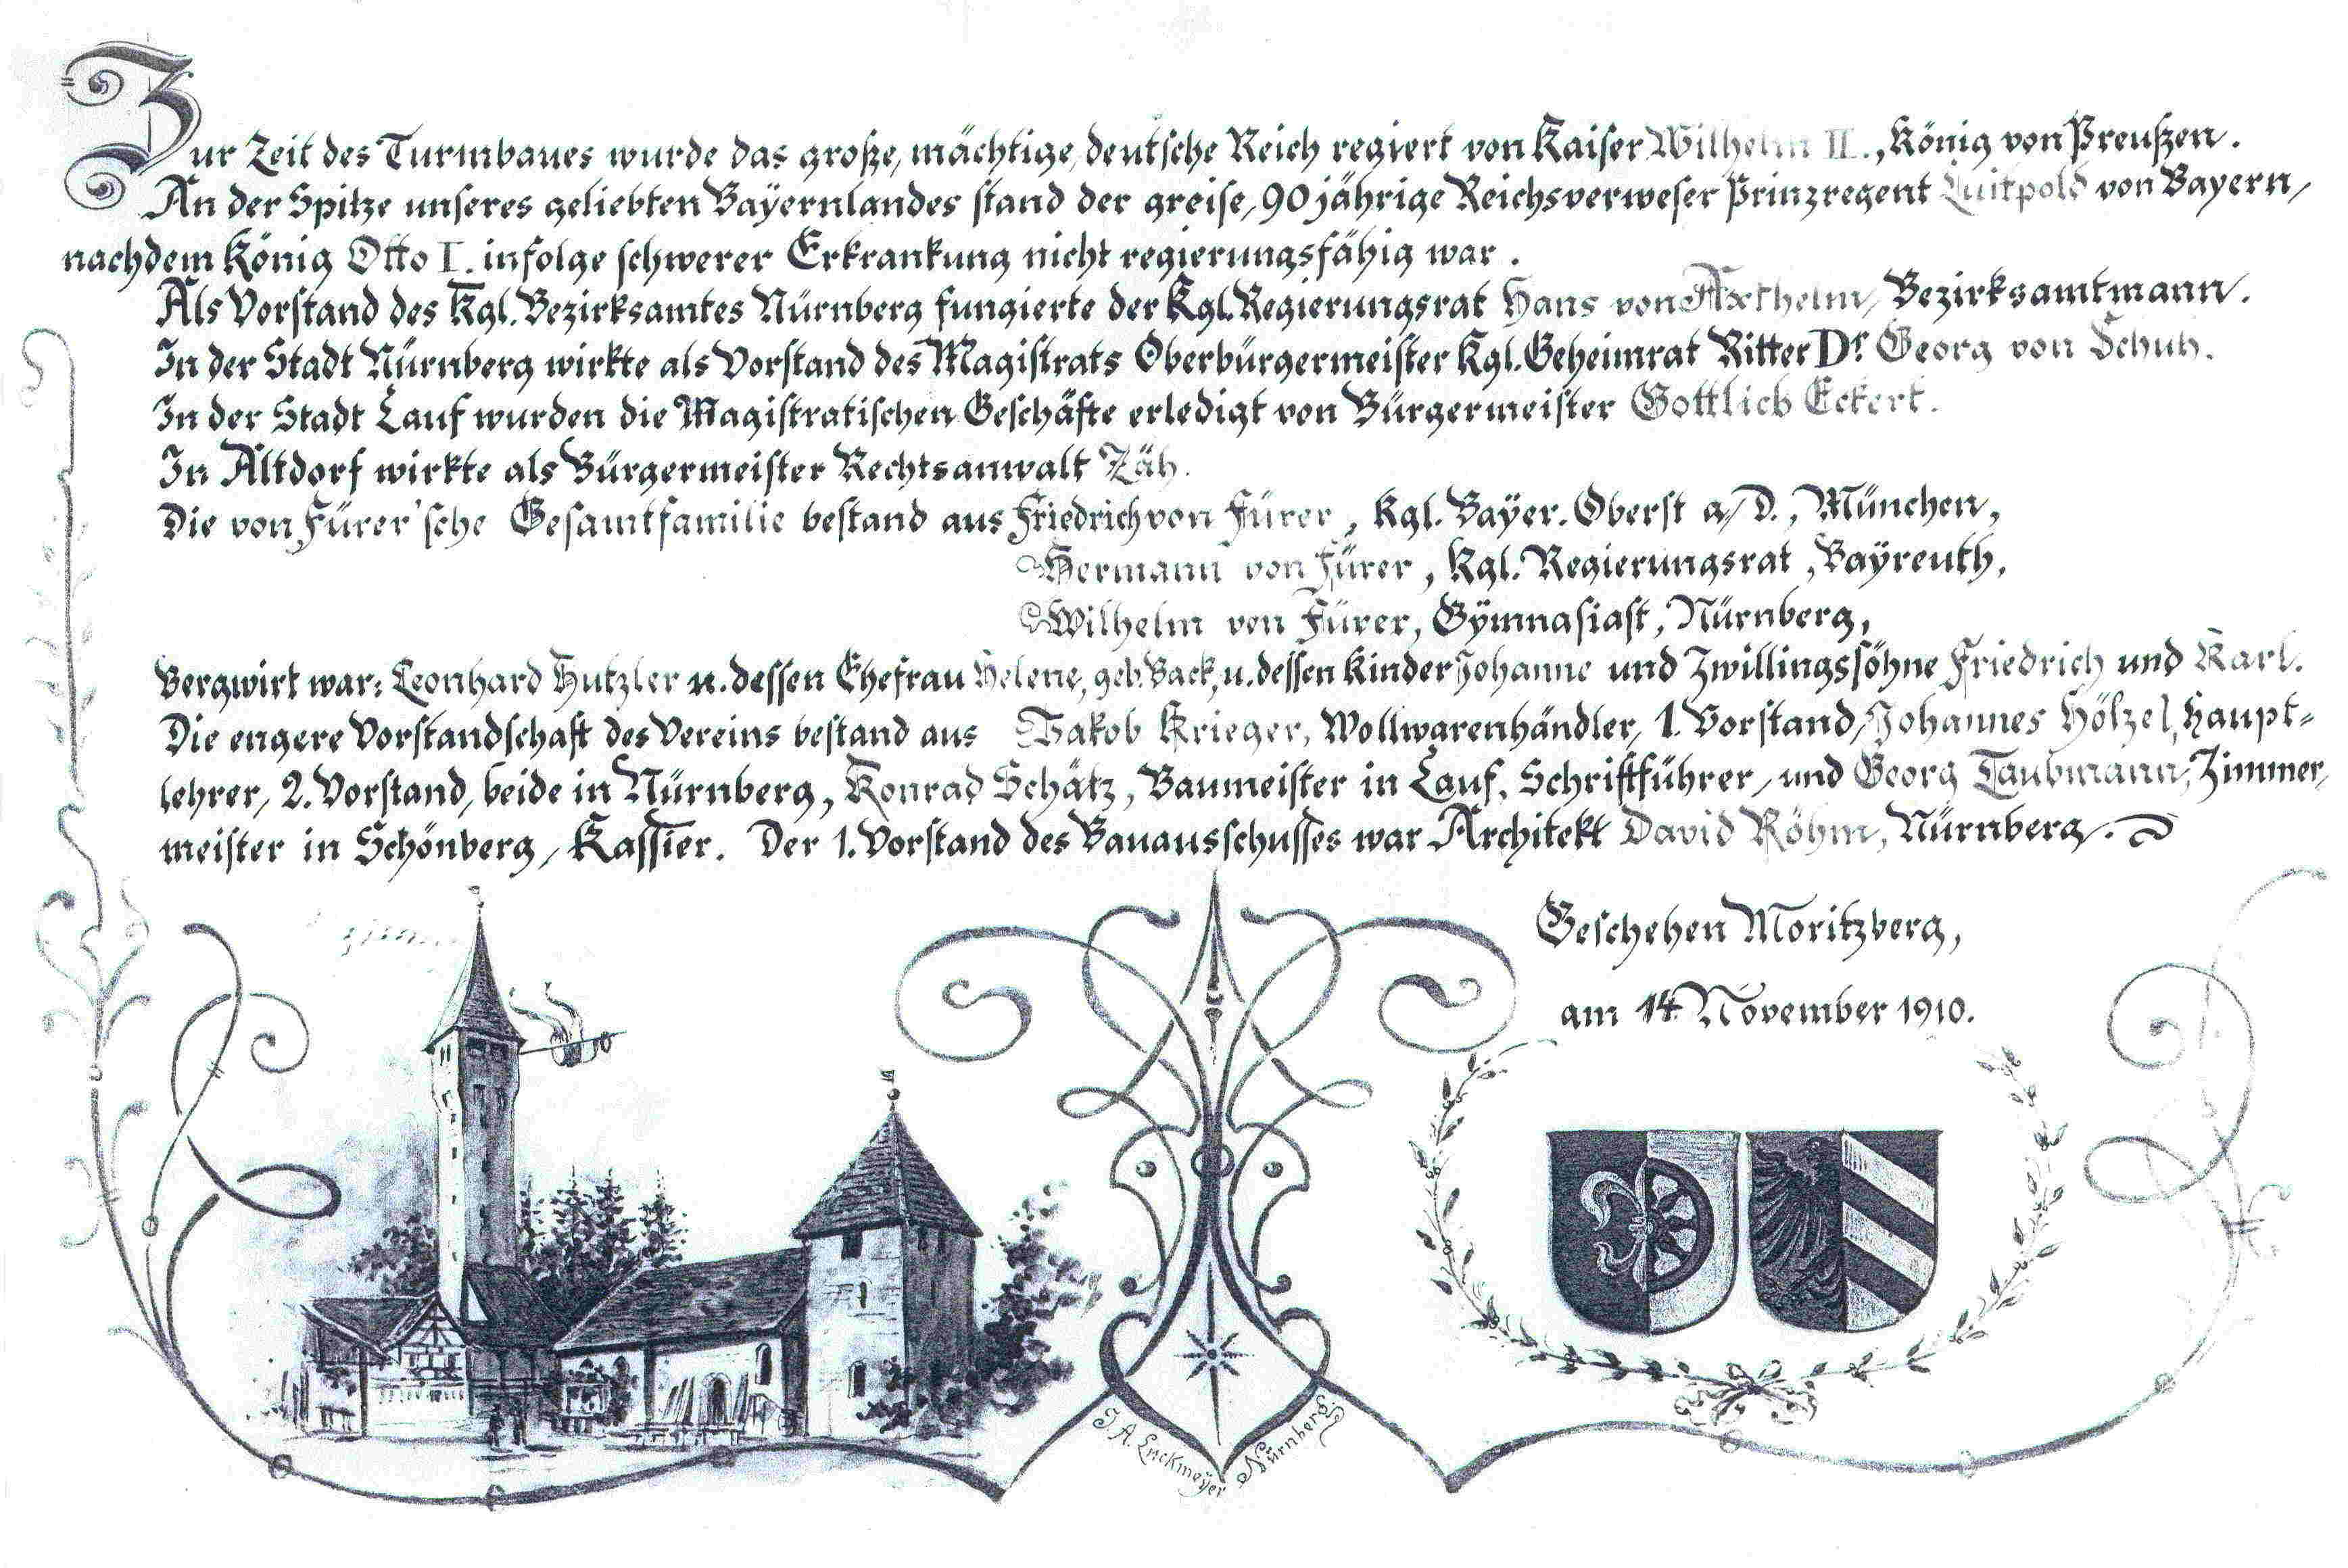 Zur Zeit des Turmbaues wurde das große, mächtige, deutsche Reich regiert von Kaiser Wilhelm II., König von Preußen.
An der Spitze unseres geliebten Bayernlandes stand der greise, 90jährige Reichsverweser Prinzregent Luitpold von Bayern,
nachdem König Otto I. infolge schwerer Erkrankung nicht regierungsfähig war.
Als Vorstand des Kgl. Bezirksamtes Nürnberg fungierte der Kgl. Regierungsrat Hans von Axthelm, Bezirksamtmann.
In der Stadt Nürnberg wirkte als Vorstand des Magistrats Oberbürgermeister Kgl. Geheimrat Ritter Dr. Georg von Schuh.
In der Stadt Lauf wurden die Magistratischen Geschäfte erledigt von Bürgermeister Gottlieb Eckert.
In Altdorf wirkte als Bürgermeister Rechtsanwalt Zäh.
Die von Fürer'sche Gesamtfamilie bestand aus Friedrich von Fürer, Kgl. Bayer. Oberst a/D., München,
Hermann von Fürer, Kgl. Regierungsrat, Bayreuth,
Wilhelm von Fürer, Gymnasiast, Nürnberg,
Bergwirt war: Leonhard Hutzler u. dessen Ehefrau Helene, geb. Back, u. dessen Kinder Johanne und Zwillingssöhne Friedrich und Karl.
Die engere Vorstandschaft des Vereins bestand aus Jakob Krieger, Wollwarenhändler, 1. Vorstand, Johannes Hölzel, Haupt-
lehrer, 2. Vorstand, beide in Nürnberg, Konrad Schätz, Baumeister in Lauf, Schriftführer, und Georg Taubmann, Zimmer-
meister in Schönberg, Kassier. Der 1. Vorstand des Bauausschusses war Architekt David Röhm, Nürnberg.
Geschehen Moritzberg,
am 14. November 1910.
J. A. Luckmeyer Nürnberg